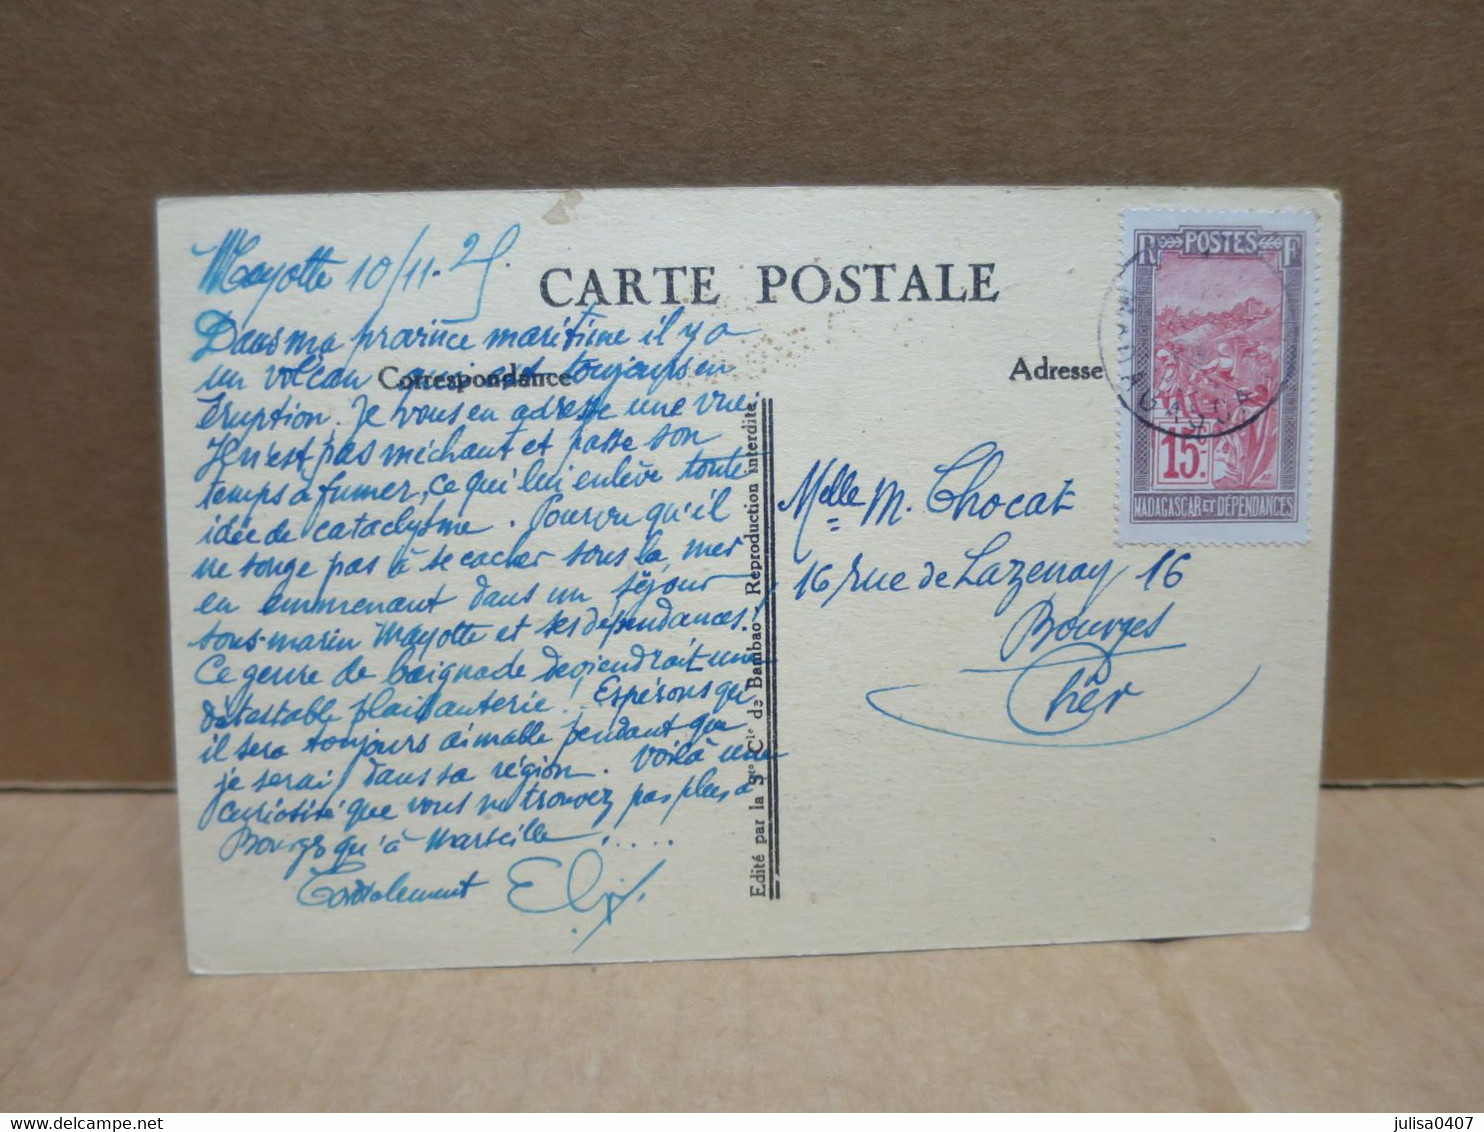 Mayotte 10/11.25.
CARTE POSTALE
Correspondance
Adresse
Dans ma province maritime il y a
un volcan qui est toujours en
éruption. Je vous en adresse une vue
Il n'est pas méchant et passe son
temps à fumer, ce qui lui enlève toute
idée de cataclysme. Pourvu qu'il
ne songe pas à se cacher sous la mer
en emmenant dans un séjour
sous-marin Mayotte et ses dépendances!
Ce genre de baignade deviendrait une
détestable plaisanterie.. Espérons qu'
il sera toujours aimable pendant que
je serai dans sa région. Voilà une
curiosité que vous ne trouvez pas plus à
Bourges qu'à Marseille !....
Cordialement
Edité par la Sté Cie de Bambao - Reproduction interdite.
Melle M. Chocat
16 rue de Lazenay 16
Bourges
Cher
RF POSTES
15c
MADAGASCAR ET DÉPENDANCES
julisa0407